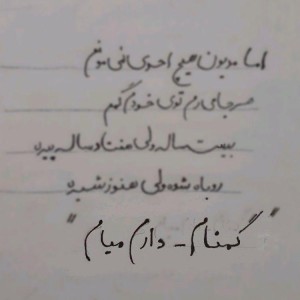 اما مدیون هیچ احدی نمی‌مونم
هر جا میرم توی خودم گمم
بیست ساله ولی هفتاد ساله پیره
روباه شده ولی هنوز شیره
"گمنام - دارم میام"